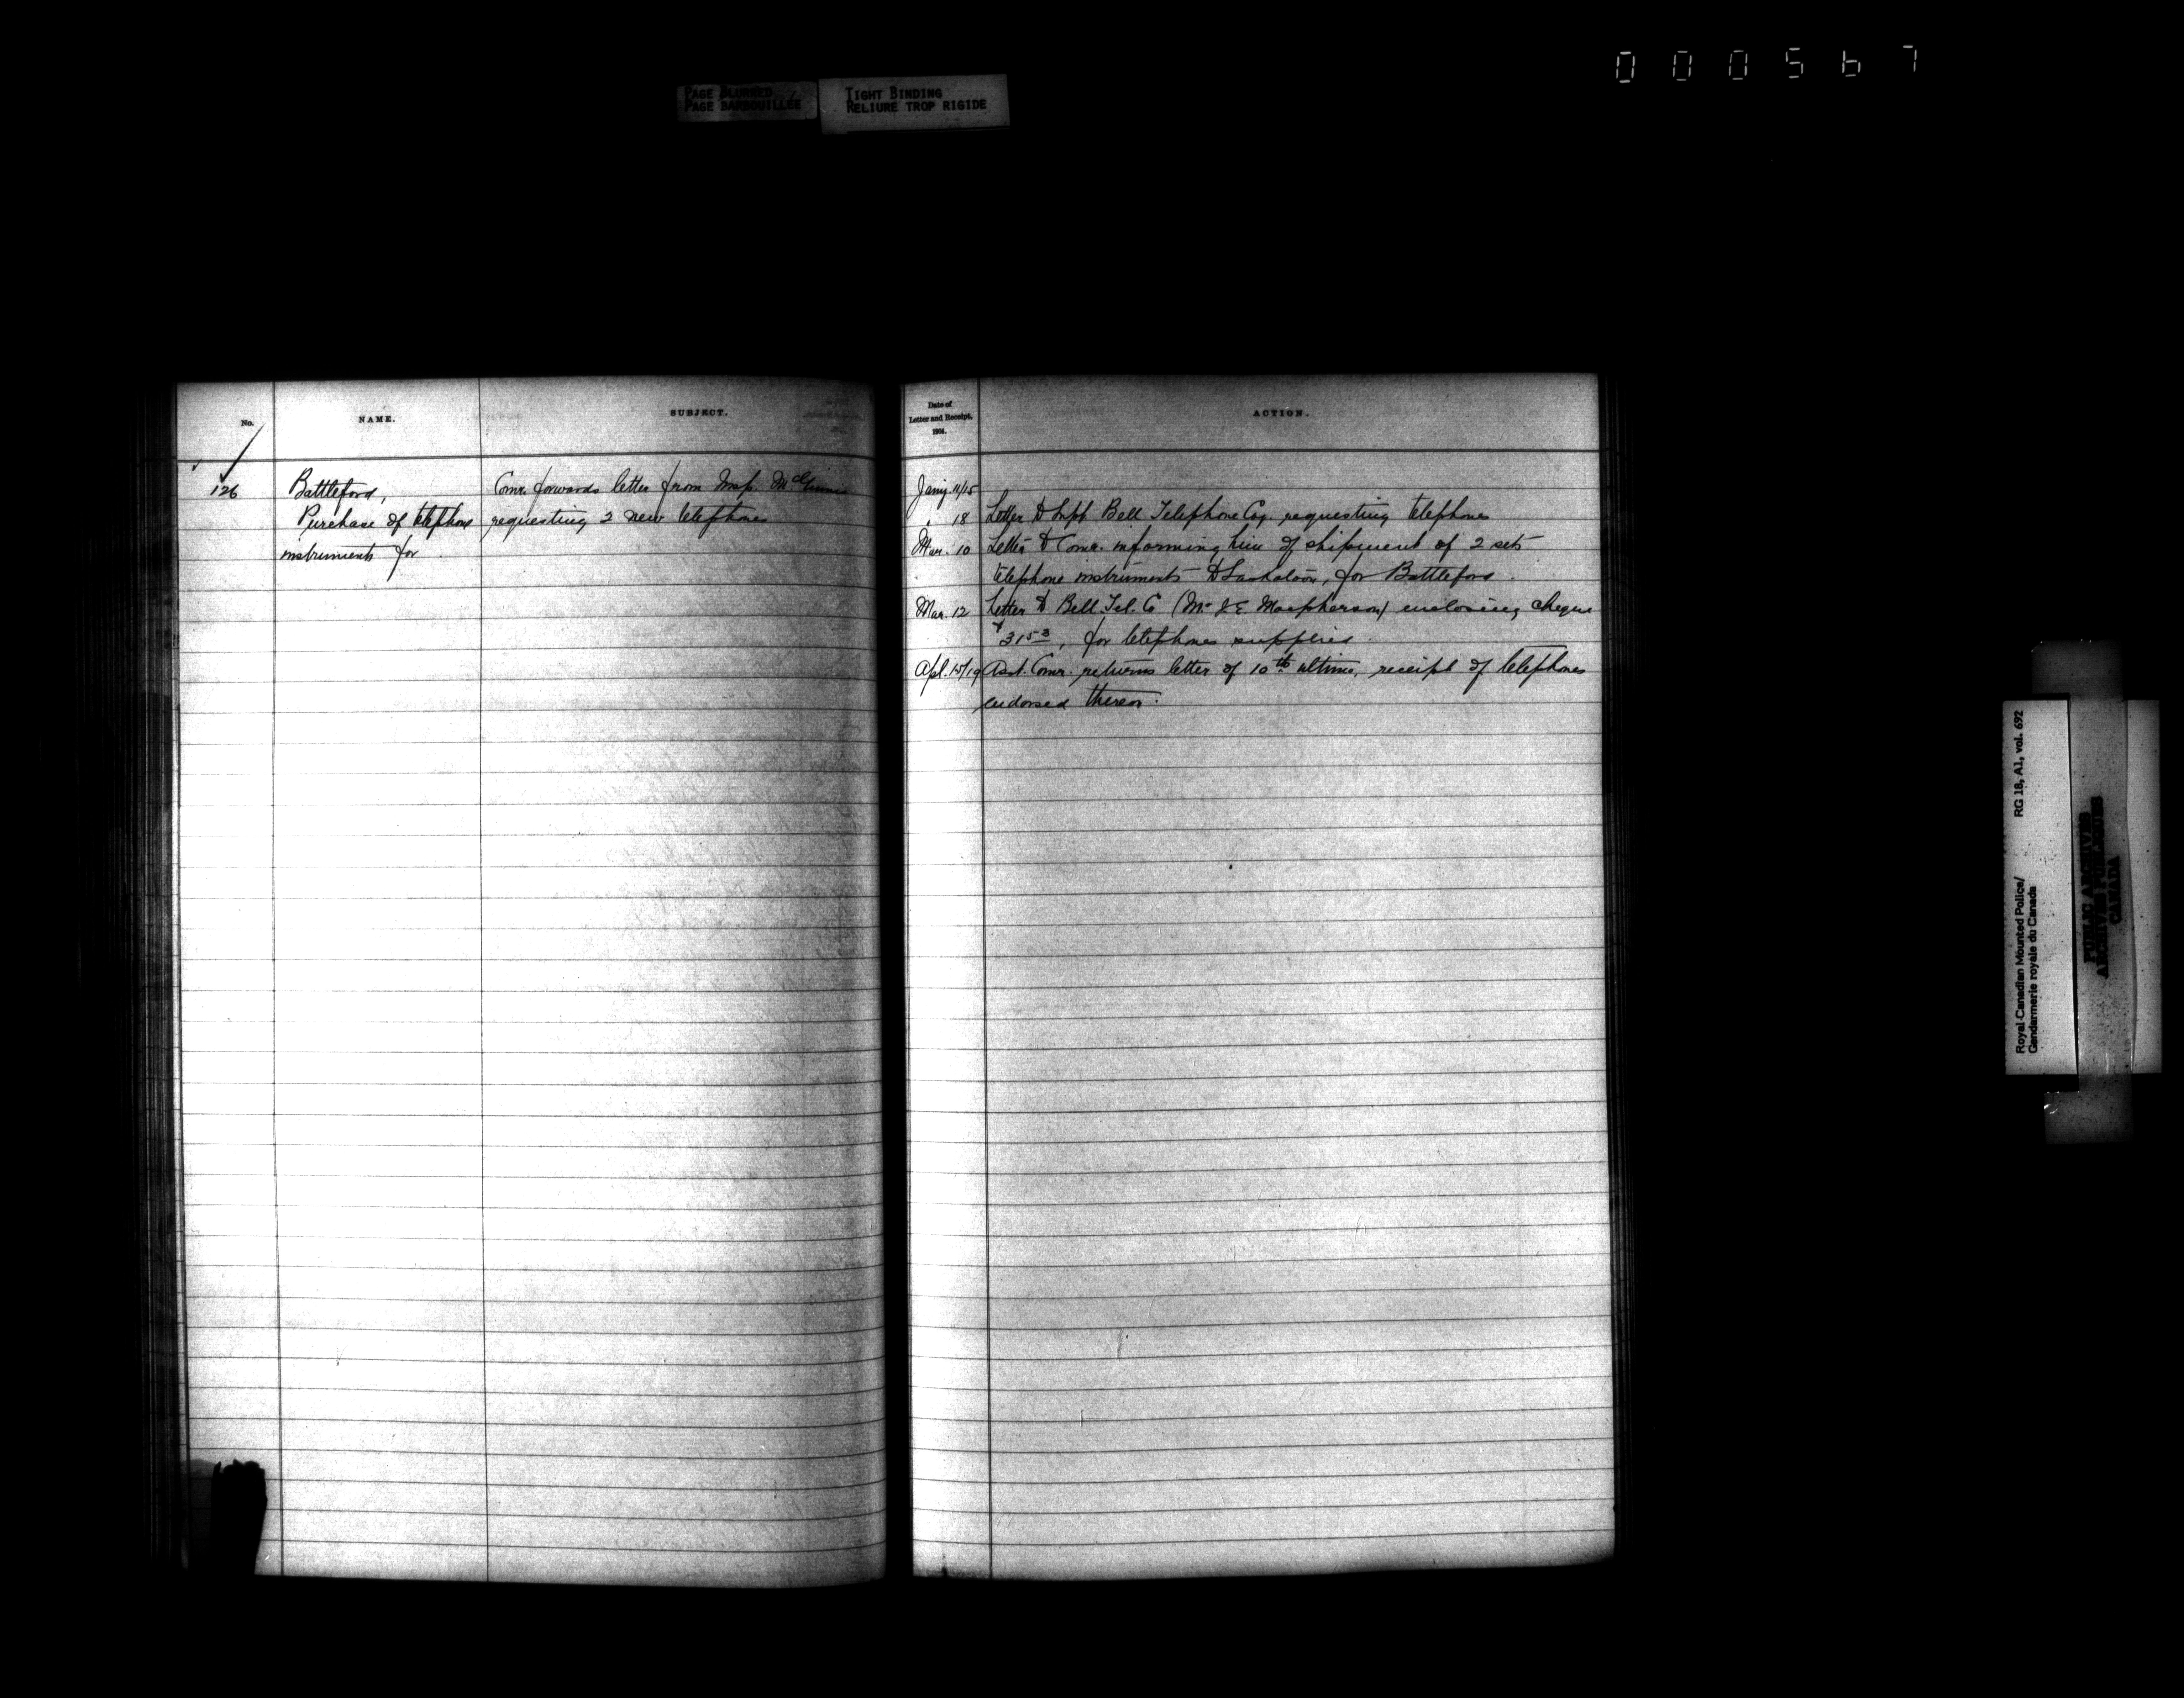 000567
PAGE BLURRED
PAGE BARBOUILLÉE
TIGHT BINDING
RELIURE TROP RIGIDE
No.
NAME.
SUBJECT.
126
Battleford,
Purchase of telephone
instruments for
Comr. forwards letter from Insp. McGinnis
requesting 2 new telephones
Date of
Letter and Receipt.
1904.
ACTION.
Jany. 11/15
" 18 Letter to Supt Bell Telephone Coy. requesting telephones
Mar. 10 Letter to Comr. informing him of shipment of 2 sets
telephone instruments to Saskatoon, for Battleford.
Mar. 12 Letter to Bell Tel. Co (Mr J E Macpherson) enclosing cheque
$31 53, for telephones supplied.
Apl. 15/19 Asst. Comr. returns letter of 10th ultimo, receipt of telephones
endorsed thereon.
Royal Canadian Mounted Police/
Gendarmerie royale du Canada
RG 18, A1, vol. 692
PUBLIC ARCHIVES
ARCHIVES PUBLIQUES
CANADA